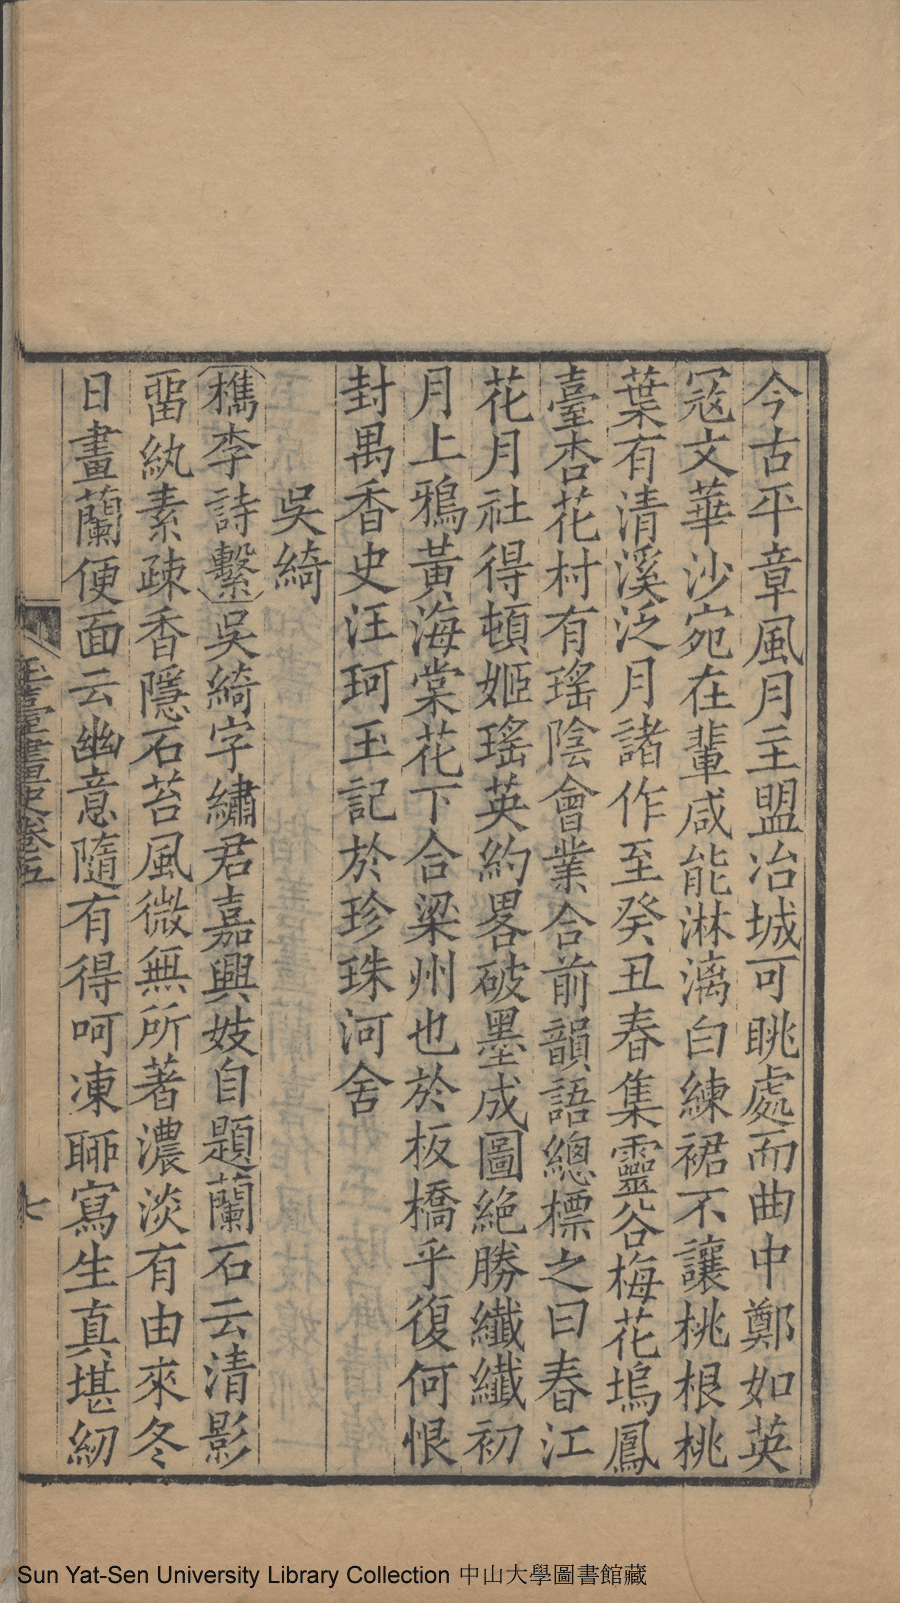 今古平章風月主盟冶城可眺處而曲中鄭如英
冦文華沙宛在輩咸能淋漓白練裙不讓桃根桃
葉有清溪泛月諸作至癸丑春集靈谷梅花塢鳳
臺杏花村有瑤陰會業合前韻語總標之曰春江
花月社得頓姬瑤英約畧破墨成圖絶勝纖纖初
月上鴉黃海棠花下合梁州也於板橋乎復何恨
封禺香史汪珂玉記於珍珠河舍
吳綺
檇李詩繫吳綺字繡君嘉興妓自題蘭石云清影
畱紈素疎香隱石苔風微無所著濃淡有由來冬
日畫蘭便面云幽意隨有得呵凍聊寫生真堪紉
玉臺畫史卷五
七
Sun Yat-Sen University Library Collection 中山大學圖書館藏